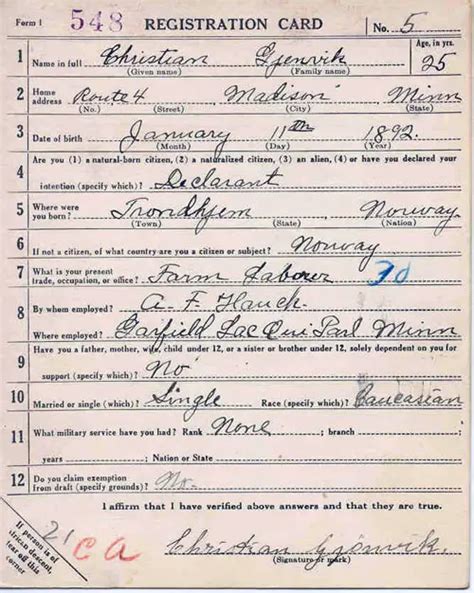 Form 1 548 REGISTRATION CARD No. 5
1 Name in full Christian Gjenvik Age, in yrs. 25
(Given name) (Family name)
2 Home address Route 4 Madison Minn
(No.) (Street) (City) (State)
3 Date of birth January 11th 1892
(Month) (Day) (Year)
4 Are you (1) a natural-born citizen, (2) a naturalized citizen, (3) an alien, (4) or have you declared your
intention (specify which)? Declarant
5 Where were you born? Trondhjem Norway
(Town) (State) (Nation)
6 If not a citizen, of what country are you a citizen or subject? Norway
7 What is your present trade, occupation, or office? Farm Laborer 30
8 By whom employed? A. F. Hauck
Where employed? Garfield Lac Qui Parl Minn
9 Have you a father, mother, wife, child under 12, or a sister or brother under 12, solely dependent on you for
support (specify which)? No
10 Married or single (which)? Single Race (specify which)? Caucasian
11 What military service have you had? Rank None ; branch
years ; Nation or State
12 Do you claim exemption from draft (specify grounds)? No.
I affirm that I have verified above answers and that they are true.
21 CA
Christian Gjönvik.
(Signature or mark)
If person is of
African descent,
tear off this
corner